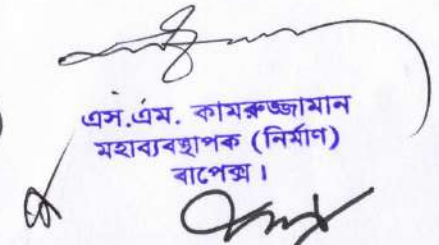 এস.এম. কামরুজ্জামান
মহাব্যবস্থাপক (নির্মাণ)
বাপেক্স।